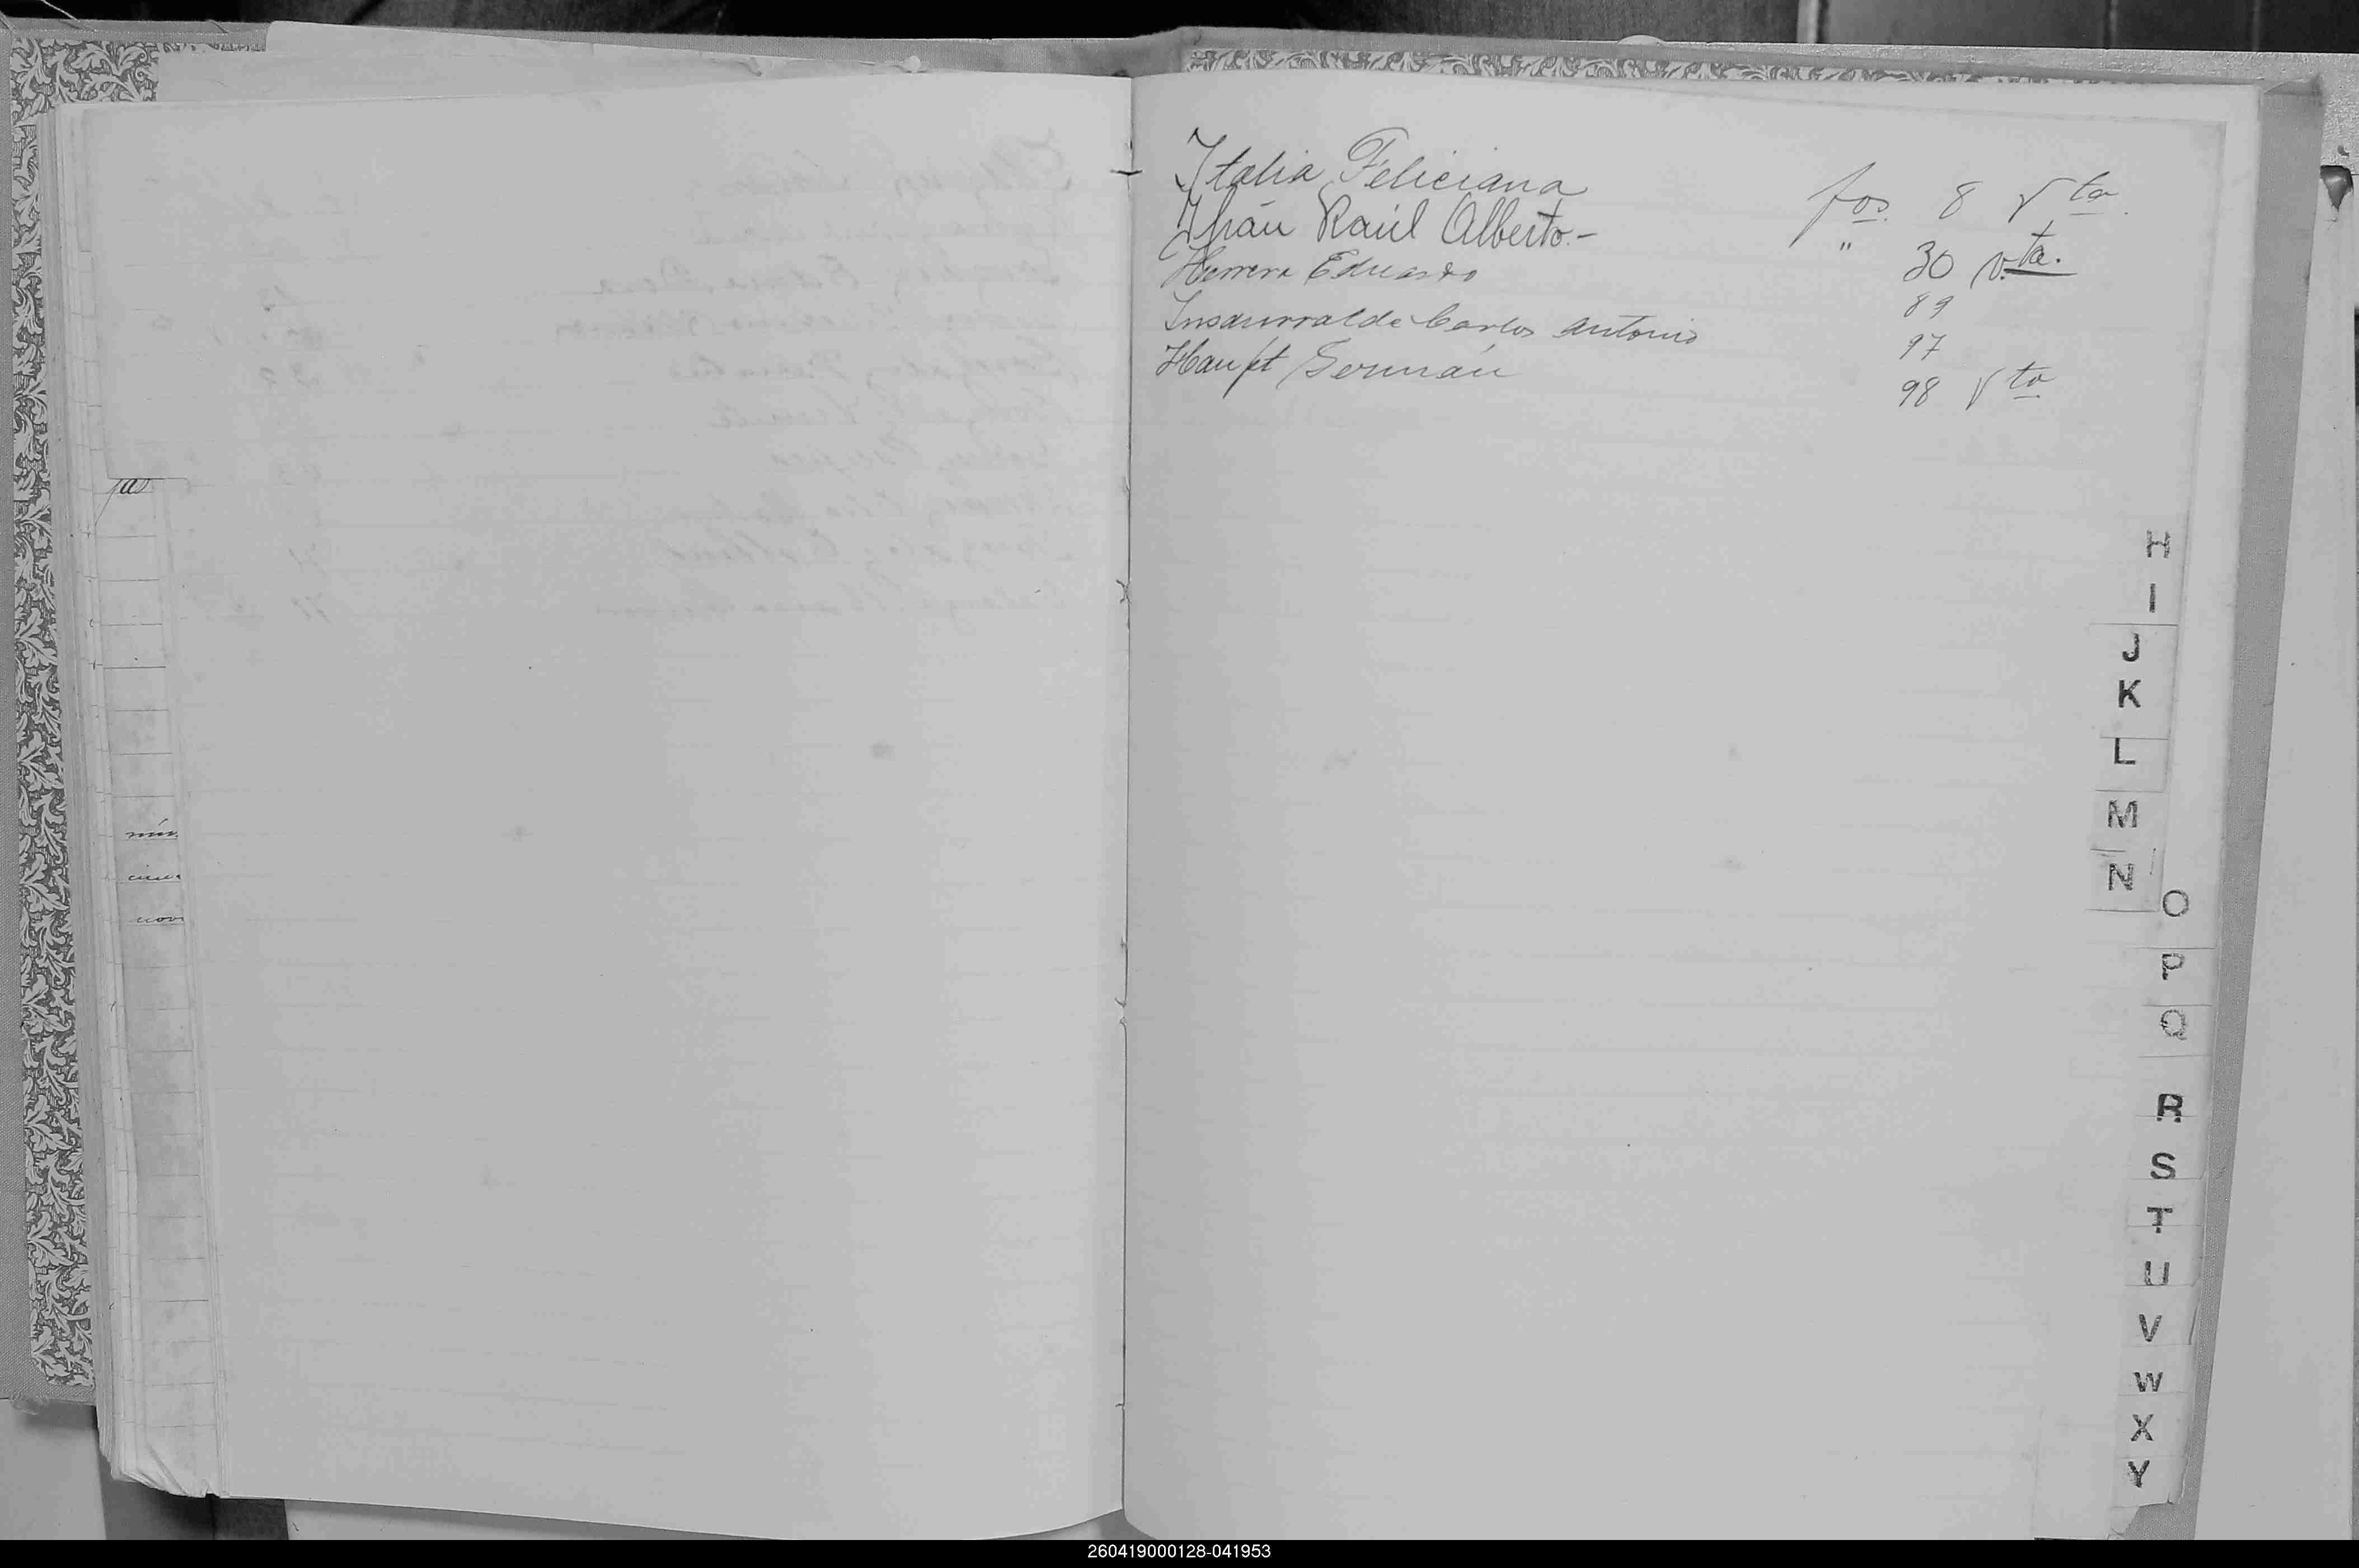 Italia Feliciana fos 8 Vta
Raúl Alberto.- " 30 vta.
Herrera Eduardo 89
Insaurralde Carlos Antonio 97
Haupt Germán 98 Vta
jas
nov
H
I
J
K
L
M
N
O
P
Q
R
S
T
U
V
W
X
Y
260419000128-041953